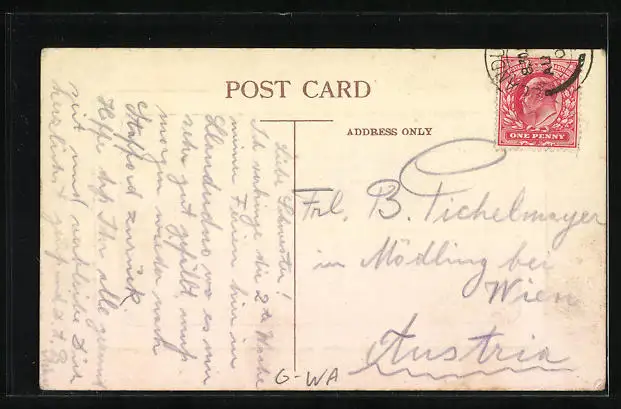 POST CARD
ADDRESS ONLY
ONE PENNY
Frl. B. Pichelmayer
in Mödling bei
Wien
Austria
Liebe Schwester!
Ich verbringe die 2te Woche
meiner Ferien hier in
Llandudno wo es mir
sehr gut gefällt, muß
morgen wieder nach
Stafford zurück.
Hoffe daß Ihr alle gesund
seit und verbleibe Dich
herzlichst
G-WA